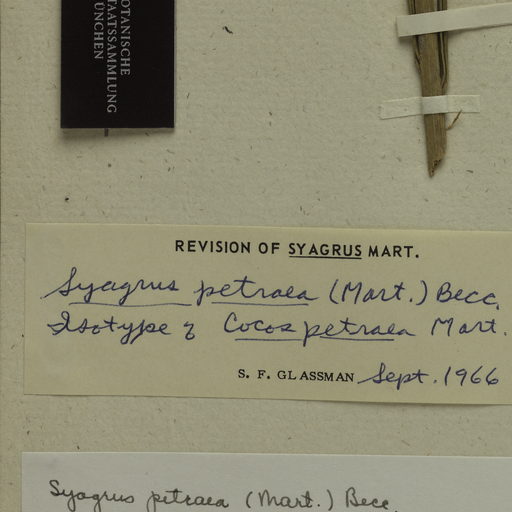 BOTANISCHE
STAATSSAMMLUNG
MÜNCHEN
REVISION OF SYAGRUS MART.
Syagrus petraea (Mart.) Becc.
Isotype of Cocos petraea Mart.
S. F. GLASSMAN Sept. 1966
Syagrus petraea (Mart.) Becc.